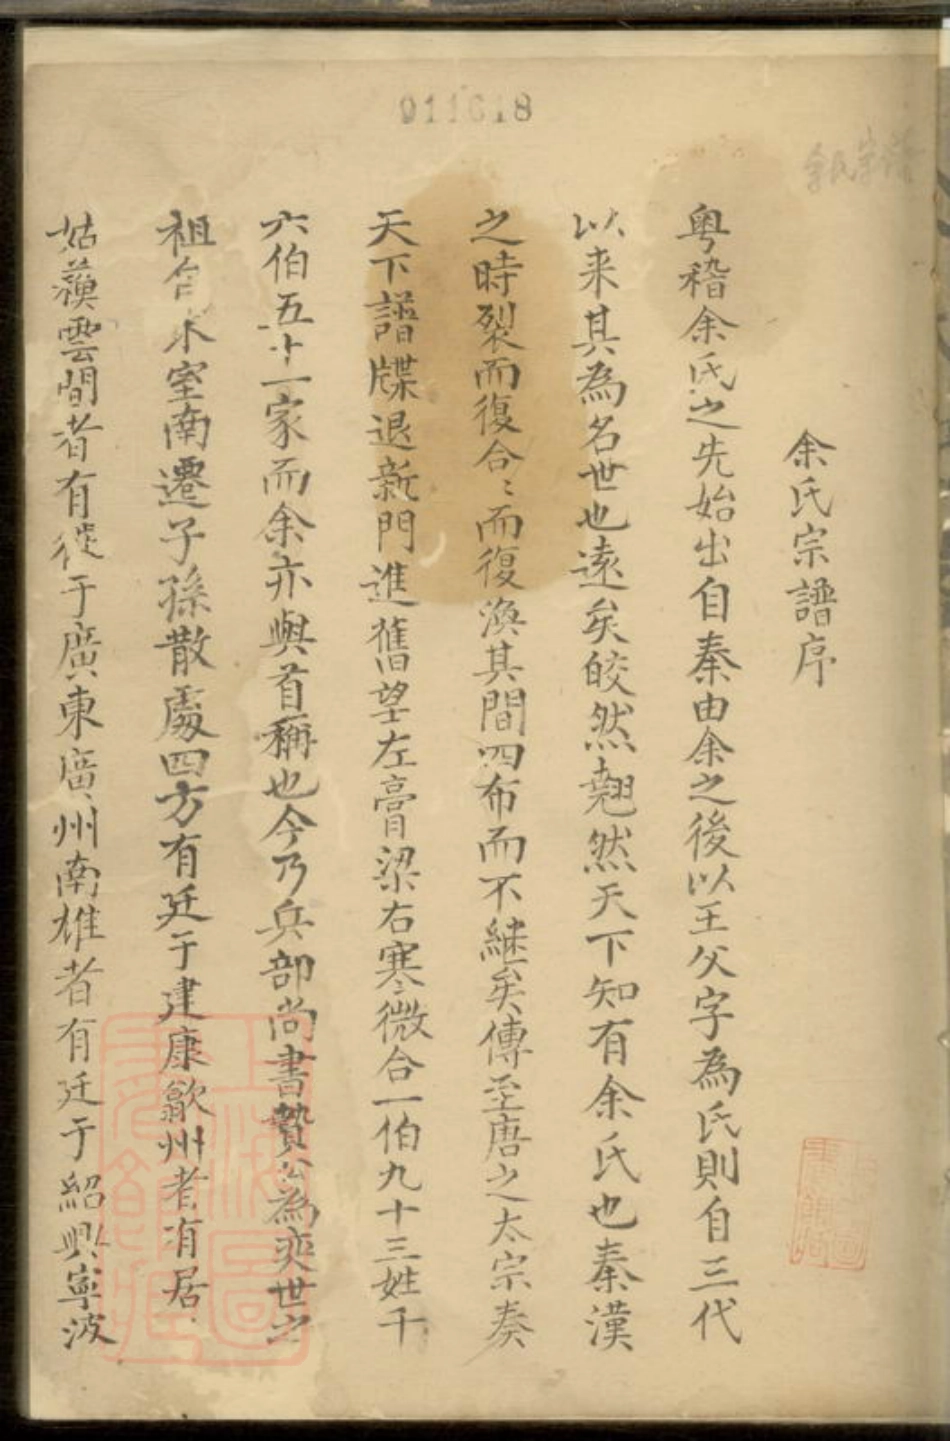 911618
余氏宗譜
余氏宗譜序
粤稽余氏之先始出自秦由余之後以王父字為氏則自三代
以来其為名世也遠矣皎然翹然天下知有余氏也秦漢
之時裂而復合〻而復渙其間四布而不継矣傳至唐之太宗奏
天下譜牒退新門進舊望左膏梁右寒微合一伯九十三姓千
六伯五十一家而余亦與首稱也今乃兵部尚書贄公為奕世之
祖自木室南遷子孫散處四方有迁于建康歙州者有居
姑蘓雲間者有徙于廣東廣州南雄者有迁于紹興寧波